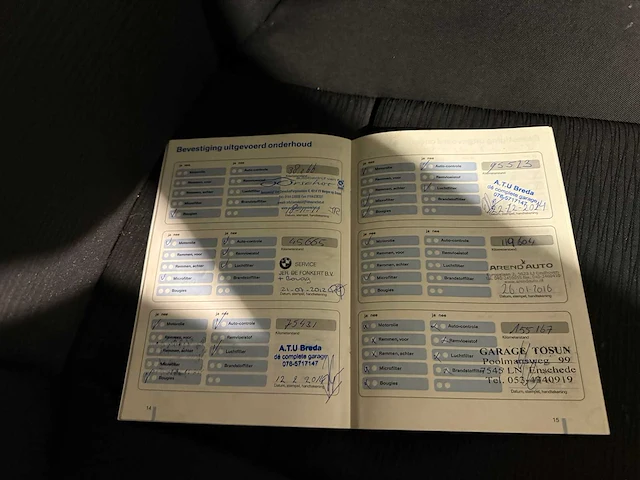 Bevestiging uitgevoerd onderhoud
ja nee
ja nee
Motorolie
Auto-controle
Remmen, voor
Remvloeistof
Remmen, achter
Luchtfilter
Microfilter
Brandstoffilter
Bougies
ja nee
ja nee
Motorolie
Auto-controle
45665
Remmen, voor
Remvloeistof
Kilometerstand
Remmen, achter
Luchtfilter
SERVICE
Microfilter
Brandstoffilter
JER. DE FORKERT B.V.
Bougies
Datum, stempel, handtekening
ja nee
ja nee
Motorolie
Auto-controle
75431
Remmen, voor
Remvloeistof
Kilometerstand
Remmen, achter
Luchtfilter
A.T.U Breda
dé complete garage
Microfilter
Brandstoffilter
076-5717147
Bougies
12 2 2014
Datum, stempel, handtekening
14
ja nee
ja nee
Motorolie
Auto-controle
95513
Remmen, voor
Remvloeistof
Kilometerstand
Remmen, achter
Luchtfilter
A.T.U Breda
dé complete garage
Microfilter
Brandstoffilter
076-5717147
Bougies
ja nee
ja nee
Motorolie
Auto-controle
119604
Remmen, voor
Remvloeistof
Kilometerstand
Remmen, achter
Luchtfilter
ARENO AUTO
Microfilter
Brandstoffilter
Bougies
26 01 2016
Datum, stempel, handtekening
ja nee
ja nee
Motorolie
Auto-controle
155167
Remmen, voor
Remvloeistof
Kilometerstand
Remmen, achter
Luchtfilter
GARAGE TOSUN
Poolmansweg 99
Microfilter
Brandstoffilter
7545 LN Enschede
Bougies
Tel. 053-4340919
Datum, stempel, handtekening
15